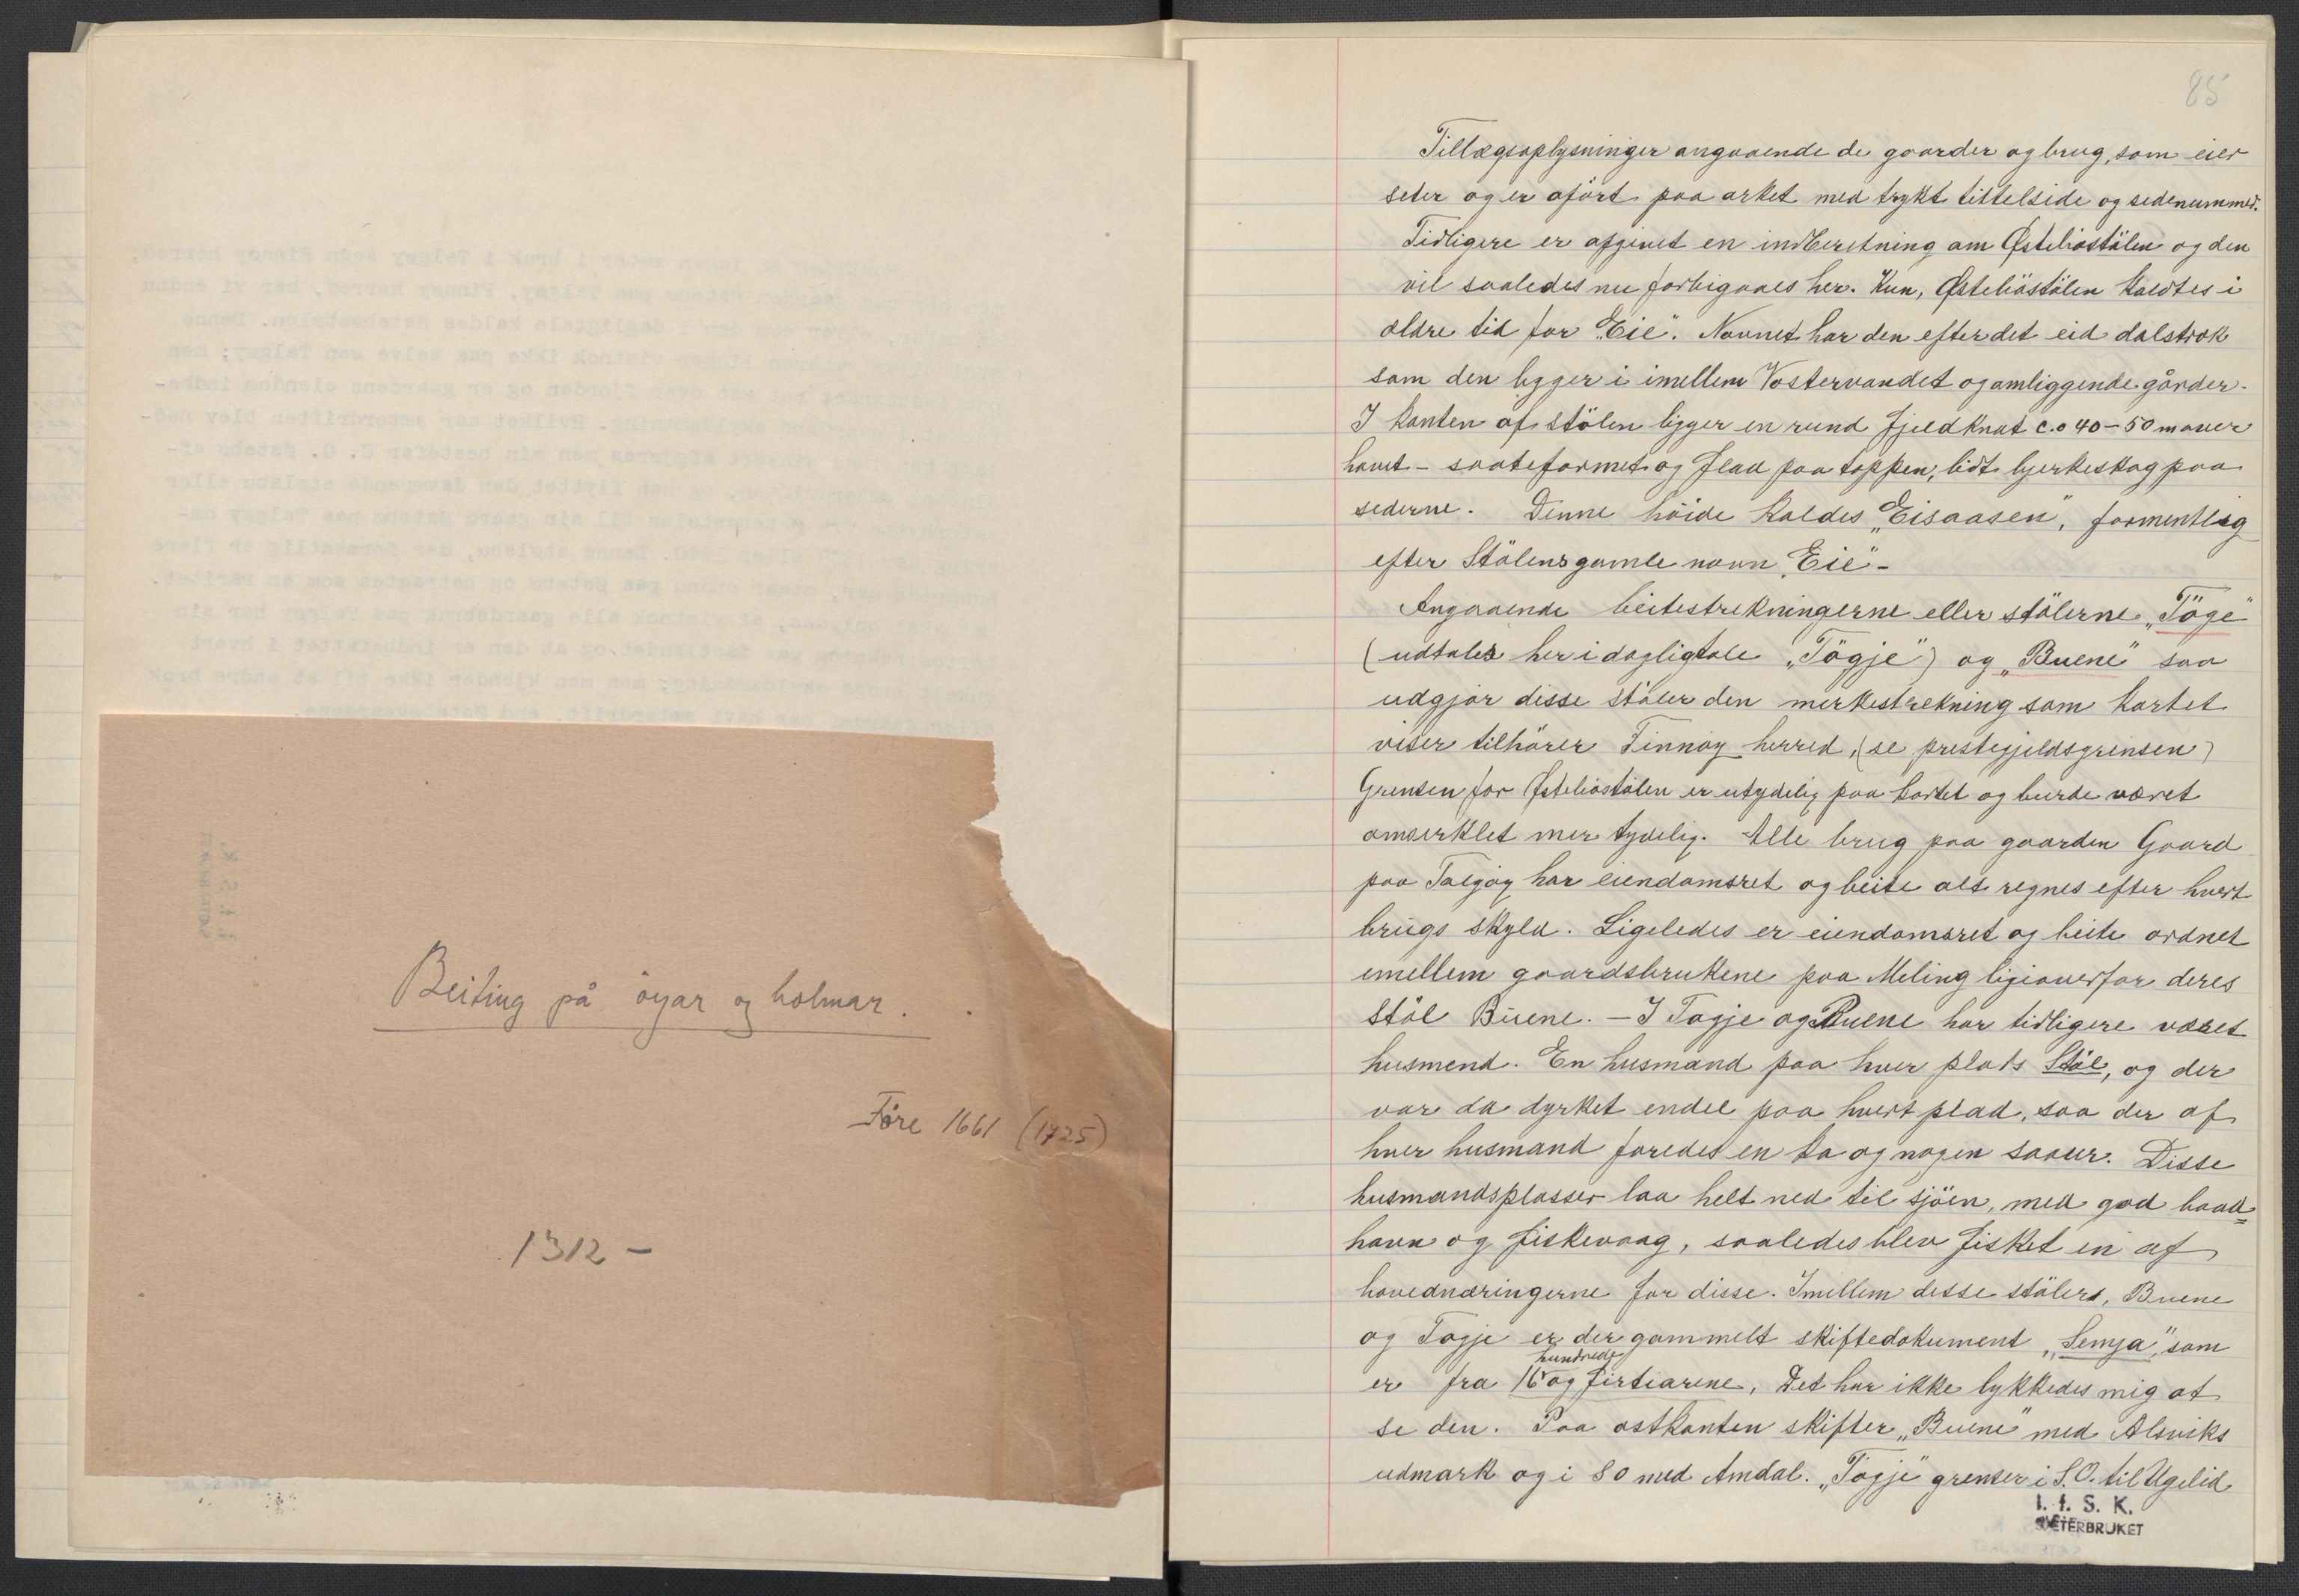 Beiting på öyar og holmar.
Före 1661 (1725)
1312 –
85
Tillægsoplysninger angaaende de gaarder og brug, som eier
seter og er oført paa arket med trykt tittelside og sedenummer.
Tidligere er afgivet en indberetning om Østeböstölen og den
vil saaledes nu forbigaaes her. Kun, Østeböstölen kaldtes i
ældre tid for "Eie". Navnet har den efter det eid dalstrøk
som den ligger i imellem Vostervandet og omliggende gårder.
I kanten af stölen ligger en rund fjeldknat c.a 40–50 m over
havet – saateformet og flad paa toppen, lidt bjerkeskog paa
siderne. Denne höide kaldes "Eisaasen", formentlig
efter Stölens gamle navn "Eie" –
Angaaende beitestrekningerne eller stölerne "Töge"
(udtales her i dagligtale "Tögje") og "Buene" saa
udgjör disse stöler den merkestrekning som kartet
viser tilhörer Finnöy herred, (se prestegjeldsgrensen)
Grensen for Østeböstölen er utydelig paa kartet og burde været
omserklet mer tydelig. Alle brug paa gaarden Gaard
paa Talgöy har eiendomsret og beite alt regnes efter hvert
brugs skyld. Ligeledes er eiendomsret og beite ordnet
imellem gaardsbrukene paa Meling ligeoverfor deres
Stöl Buene. – I Togje og Buene har tidligere været
husmend. En husmand paa hver plads Stöl, og der
var da dyrket endel paa hvert plad, saa der af
hver husmand foredes en ko og nogen sauer. Disse
husmandsplasser laa helt ned til sjöen, med god baad=
havn og fiskevaag, saaledes blev fisket en af
hovednæringerne for disse. Imellem desse stölers, Buene
og Togje er der gammelt skiftedokument "Semja", som
er fra 16 hundrede og firtiarene, Det har ikke lykkedes mig at
se den. Paa østkanten skifter "Buene" med Alsviks
udmark og i SO med Amdal. "Togje" grenser i S.O. til Ugelid
I. f. S. K.
SÆTERBRUKET